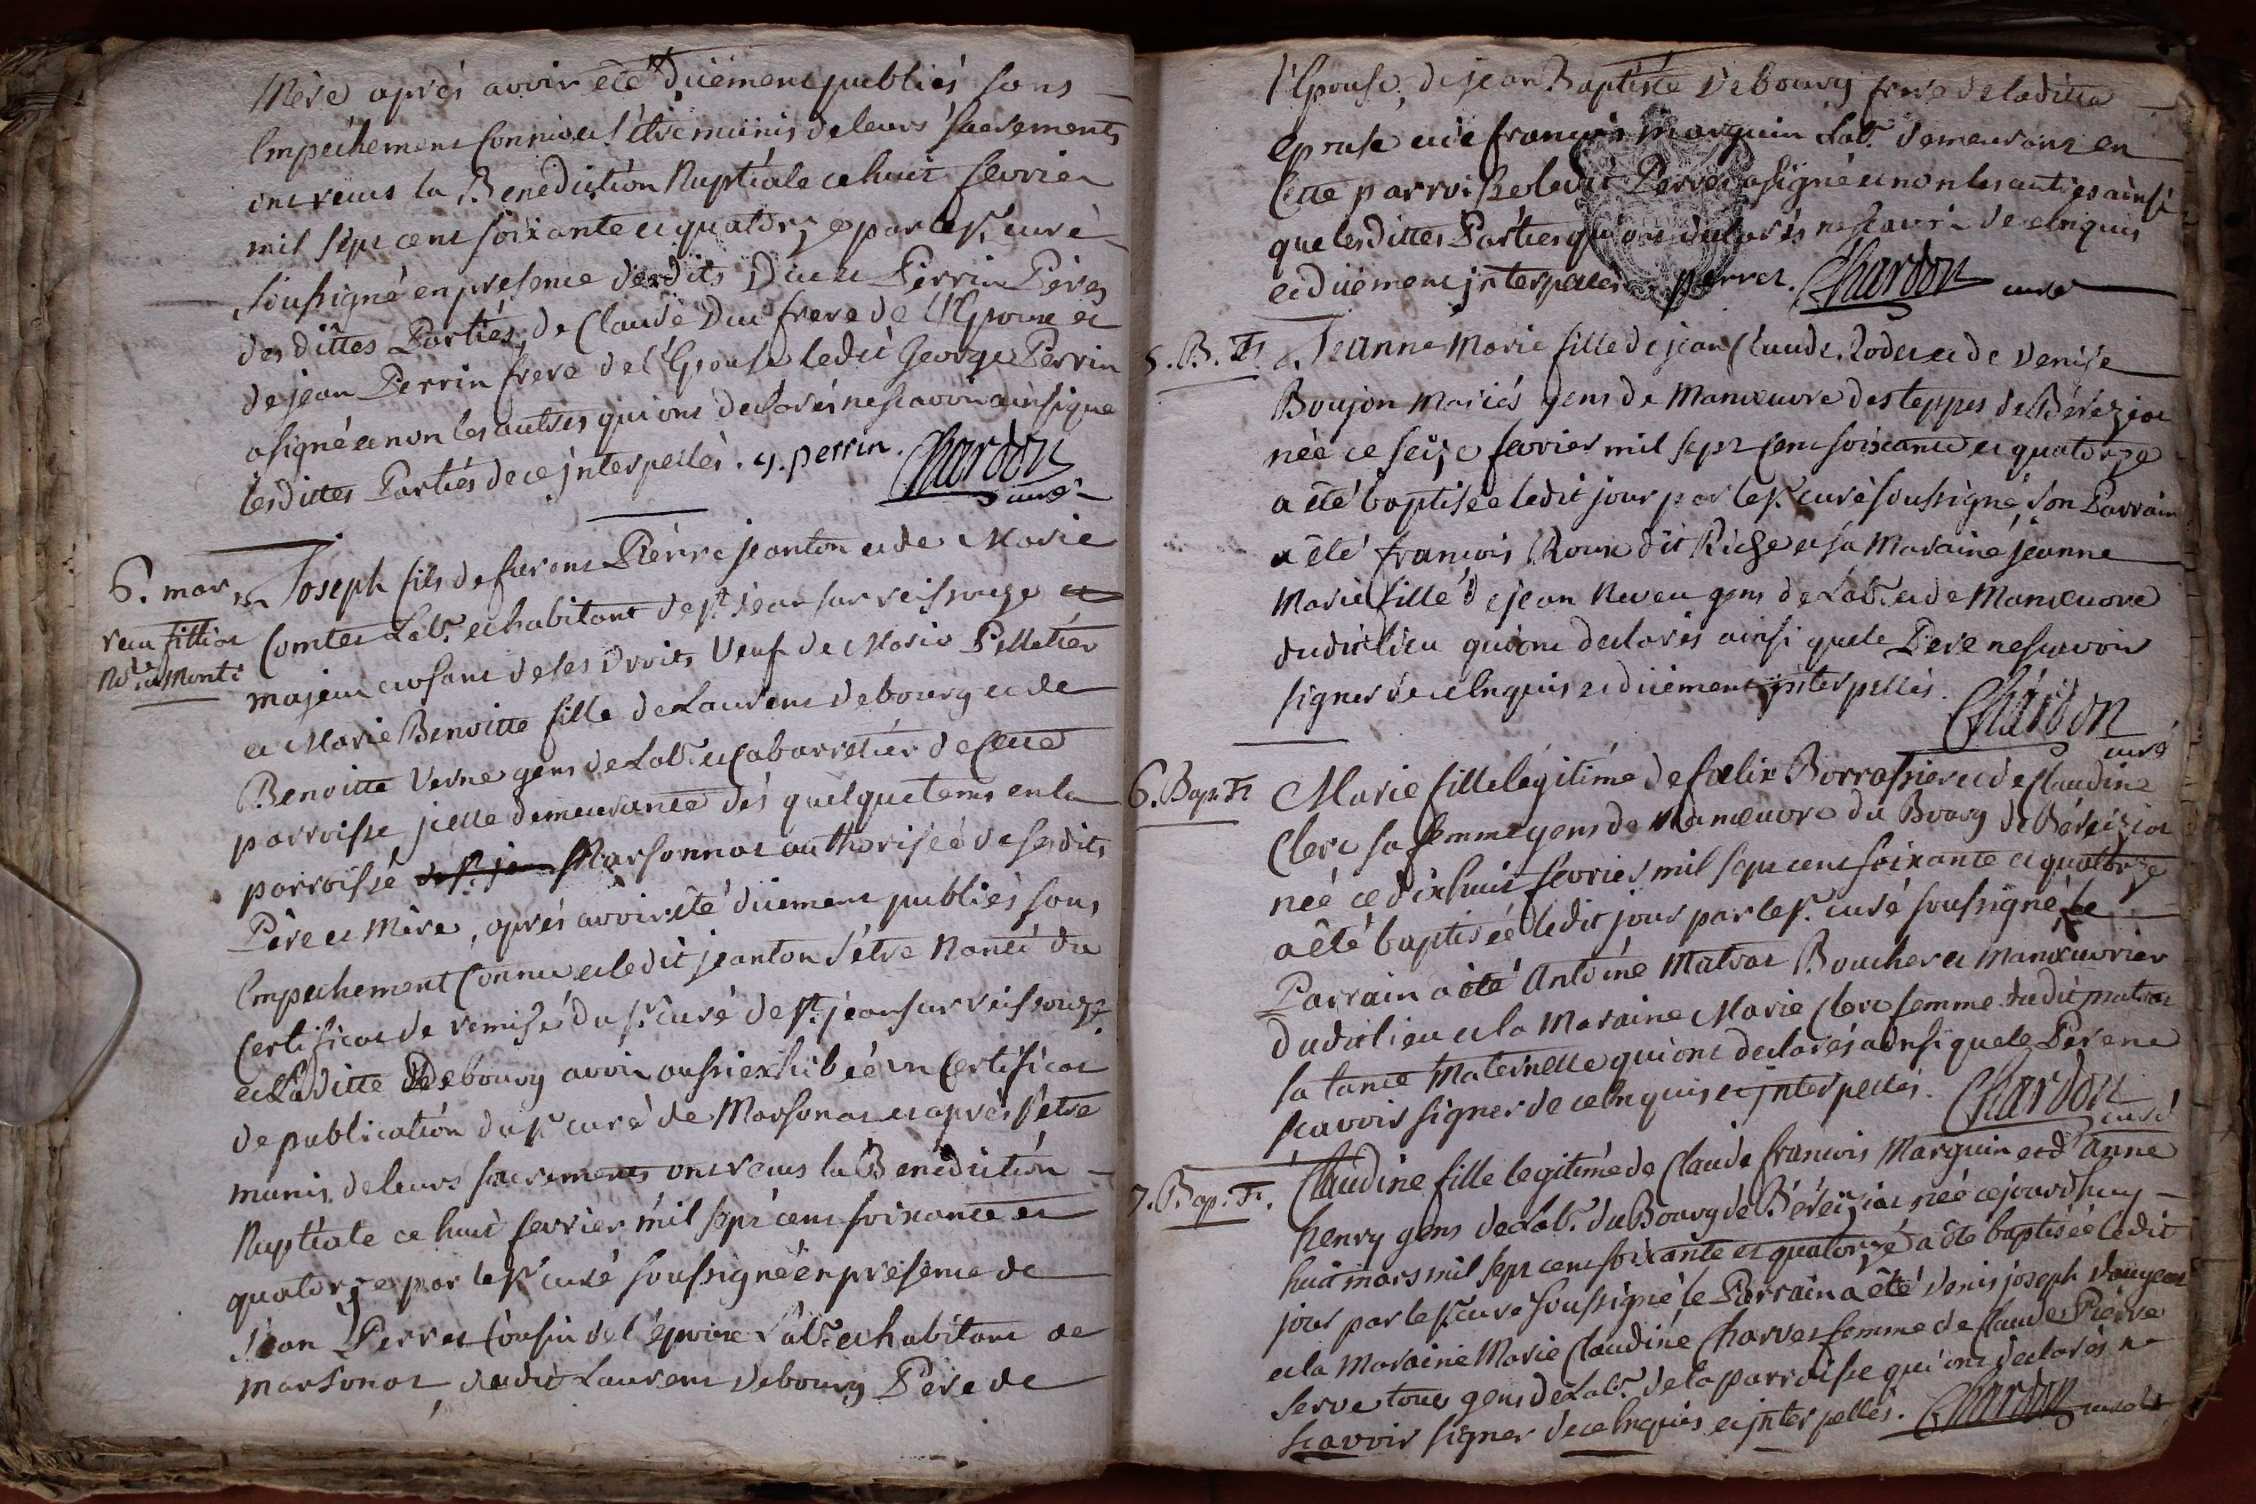 Mere aprés avoir été düement publiés sans
Empêchement connu et s'être munis de leurs sacrements
ont reçus la Benediction Nuptiale ce huit fevrier
mil sept cent soixante et quatorze par le Sr. curé
soussigné en presence desdits Duc et Perrin Péres
des dittes Parties, de Claude Duc frere de l'Epoux et
de jean Perrin frere de l'Epouse ledit George Perrin
a signé et non les autres qui ont declarés ne scavoir ainsi que
lesdittes Parties de ce interpellés. g. perrin. Chardon
curé
6. mar.
Joseph fils de furent Pierre jeanton et de Marie
Comtet Labr. et habitant de St. jean sur reissouze et
majeur et usant de ses droits Veuf de Marie Pelletier
et Marie Benoitte fille de Laurent debourg et de
Benoitte Verne gens de Labr. et Cabarretier de cette
parroisse icelle demeurante dés quelque tems en la
parroisse de St. je Marsonnat authorisée de sesdits
Père et Mère, aprés avoir été düement publiés sans
Empechement Connu et ledit jeanton s'être Nanti du
Certificat de remise du Sr. curé de St. jean sur reissouze
et Laditte Debourg avoir aussi exhibéé un Certificat
de publication du Sr curé de Marsonat et aprés s'etre
munis de leurs sacrements ont reçus la Benediction
Nuptiale ce huit fevrier mil sept cent soixante et
quatorze par le Sr curé soussigné en presence de
Jean Perret Cousin de l'époux Labr. et habitant de
marsonat, dudit Laurent debourg Père de
l'Epouse, de jean Baptiste Debourg frere de laditte
epouse et de françois Marguin Labr. demeurans en
Cette parroisse ledit Perret a signé et non les autres ainsi
que lesdittes Parties qui ont declarés ne scavoir de ce Enquis
et düement interpellés perret. Chardon curé
5. B. F.
Jeanne Marie fille de jean Claude Rodet et de Denise
Boujon Mariés gens de Manœuvre des teppes de Béréziat
née ce seize fevrier mil sept cent soixante et quatorze
a été baptisée ledit jour par le Sr curé soussigné, son Parrain
a été françois Roux dit Riche et sa Maraine jeanne
Marie fille de jean Neveu gens de Labr. et de Manœuvre
dudit lieu qui ont declarés ainsi que le Pere ne scavoir
signer de ce Enquis et düement interpellés.
Chardon
curé
6. Bap. F.
Marie fille légitime de fœlix Borrassier et de Claudine
Clerc sa femme gens de Manœuvre du Bourg de Béréiziat
née ce dixhuit fevrier mil sept cent soixante et quatorze
a été baptiséé ledit jour par le Sr. curé soussigné, le
Parrain a été Antoine Matrat Boucher et Manœuvrier
dudit lieu et la Maraine Marie Clerc femme dudit matrat
sa tante Maternelle qui ont declarés ainsi que le Pere ne
scavoir signer de ce Enquis et interpellés. Chardon
curé
7. Bap. F.
Claudine fille legitime de Claude françois Marguin et d'Anne
henry gens de Labr. du Bourg de Béréiziat néé cejourdhuy
huit mars mil sept cent soixante et quatorze a été baptiséé ledit
jour par le Sr. curé soussigné, le Parrain a été Denis joseph
et la Maraine Marie Claudine Charvet femme de Claude Pierre
Serve tous gens de Labr. de la parroisse qui ont declarés ne
scavoir signer de ce Enquis et interpellés. Chardon curé